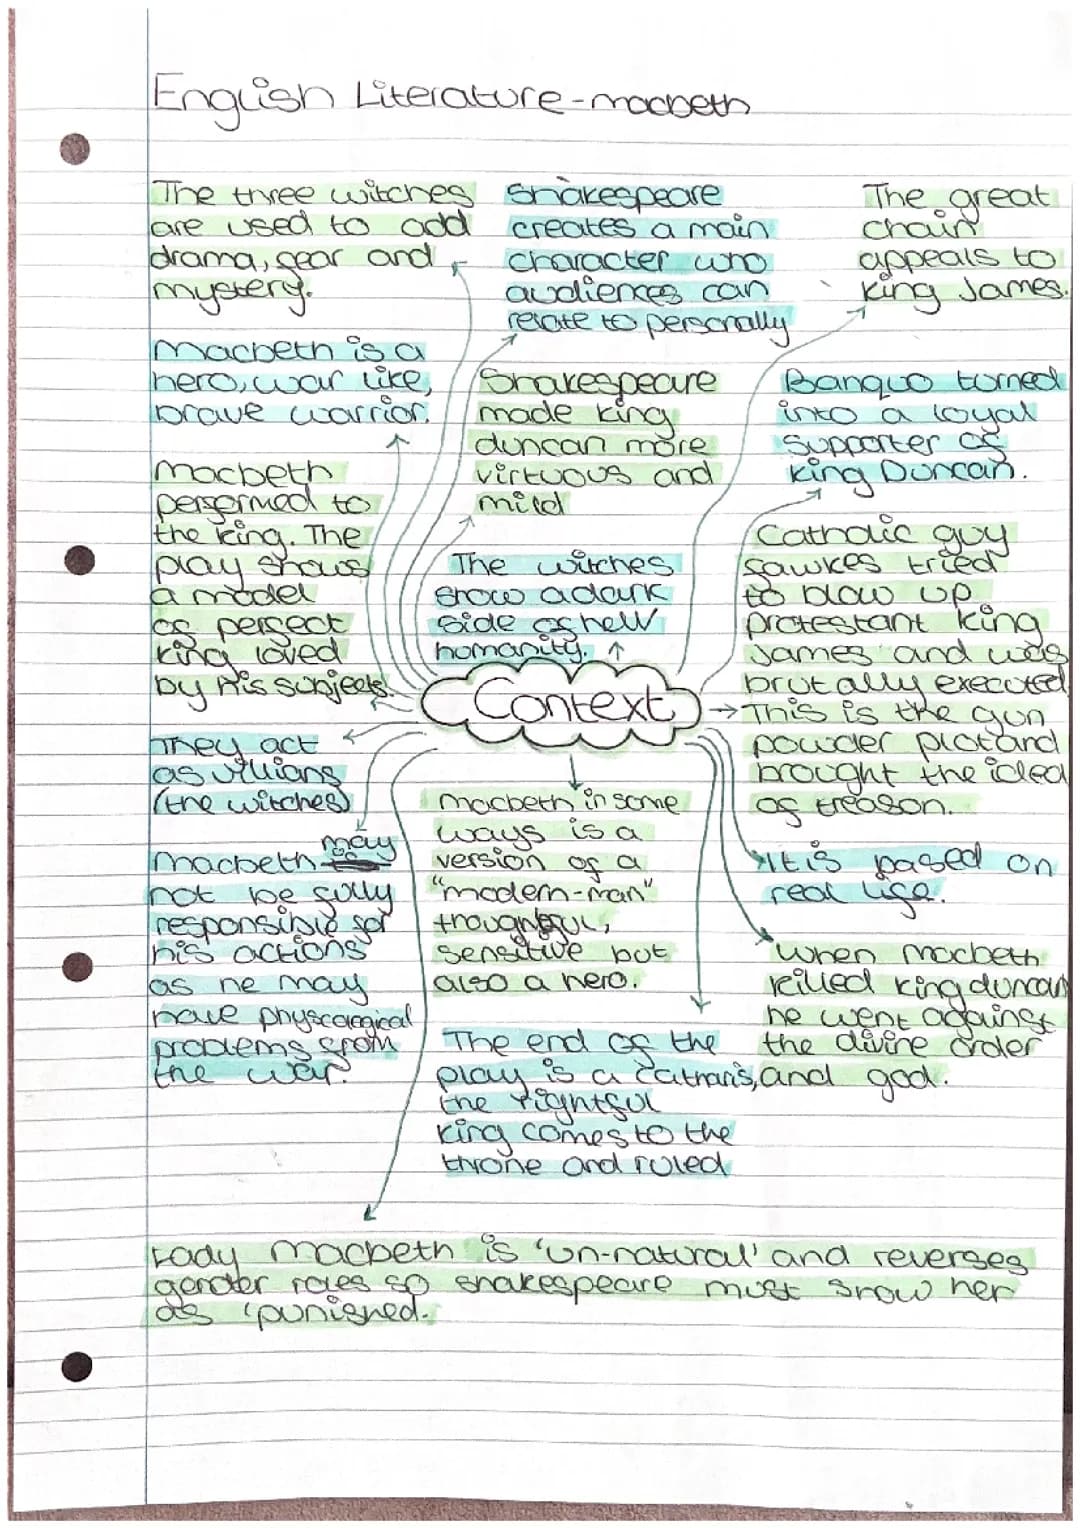 English Literature - macbeth
The three witches
are used to add
drama, fear and
mystery.
Shakespeare
creates a main
character who
audiences can
relate to personally
The great
chain
appeals to
king James.
Macbeth is a
hero, war like,
brave warrior.
Shakespeare
made king
duncan more
virtuous and
mild
Banquo turned
into a loyal
supporter of
king Duncan.
Macbeth
performed to
the king. The
play shows
a model
of perfect
king loved
by his subjects.
The witches
show a dark
side of new
humanity.
Catholic guy
fawkes tried
to blow up
protestant king
James and was
brutally executed
This is the gun
powder plot and
brought the idea
of treason.
Context
They act
as villians
(the witches)
Macbeth may
not be fully
responsible for
his actions
as he may
have physcological
problems from
the war.
macbeth in some
ways is a
version of a
"modern-man"
thoughtful,
sensitive but
also a hero.
It is based on
real life.
When Macbeth
killed king duncan
he went against
the divine order
and god.
The end of the
play is a catharis,
the rightful
king comes to the
throne and ruled
Lady Macbeth is 'un-natural' and reverses
gender roles so shakespeare must show her
as 'punished.